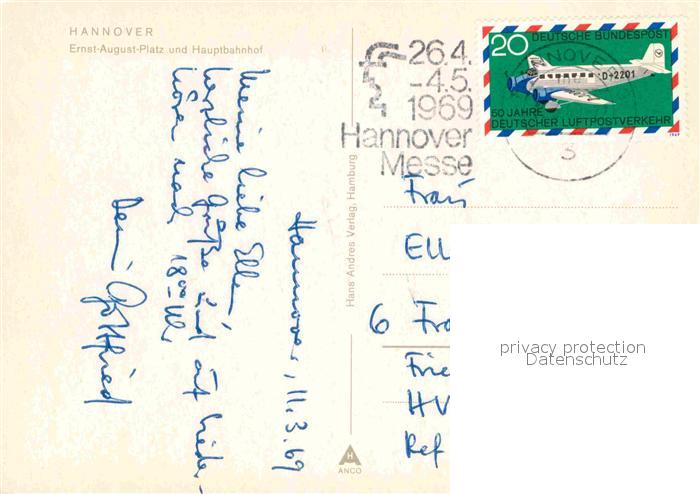 HANNOVER
Ernst-August-Platz und Hauptbahnhof
Hannover, 11.3.69
Meine liebe Ellen!
herzliche Grüße und auf Wieder-
hören nach 18⁰⁰ Uhr
Dein Gottfried
Hans Andres Verlag, Hamburg
H
ANCO
26.4.
-4.5.
1969
Hannover
Messe
HANNOVER
3
20 DEUTSCHE BUNDESPOST
D-2201
50 JAHRE
DEUTSCHER LUFTPOSTVERKEHR
1969
Frau
ELL
6 Fra
Frie
HV
Ref
privacy protection
Datenschutz